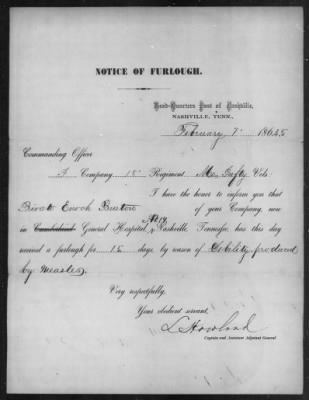 NOTICE OF FURLOUGH.
Head-Quarters Post of Nashville,
NASHVILLE, TENN.,
February 7" 1865
Commanding Officer
Company Regiment Vols:
I have the honor to inform you that
Enoch of your Company, now
in Cumberland General Hospital, Nashville, Tennessee, has this day
received a furlough for 15 days by reason of Debility produced
by measles.
Very respectfully,
Your obedient servant,
L Howland
Captain and Assistant Adjutant General